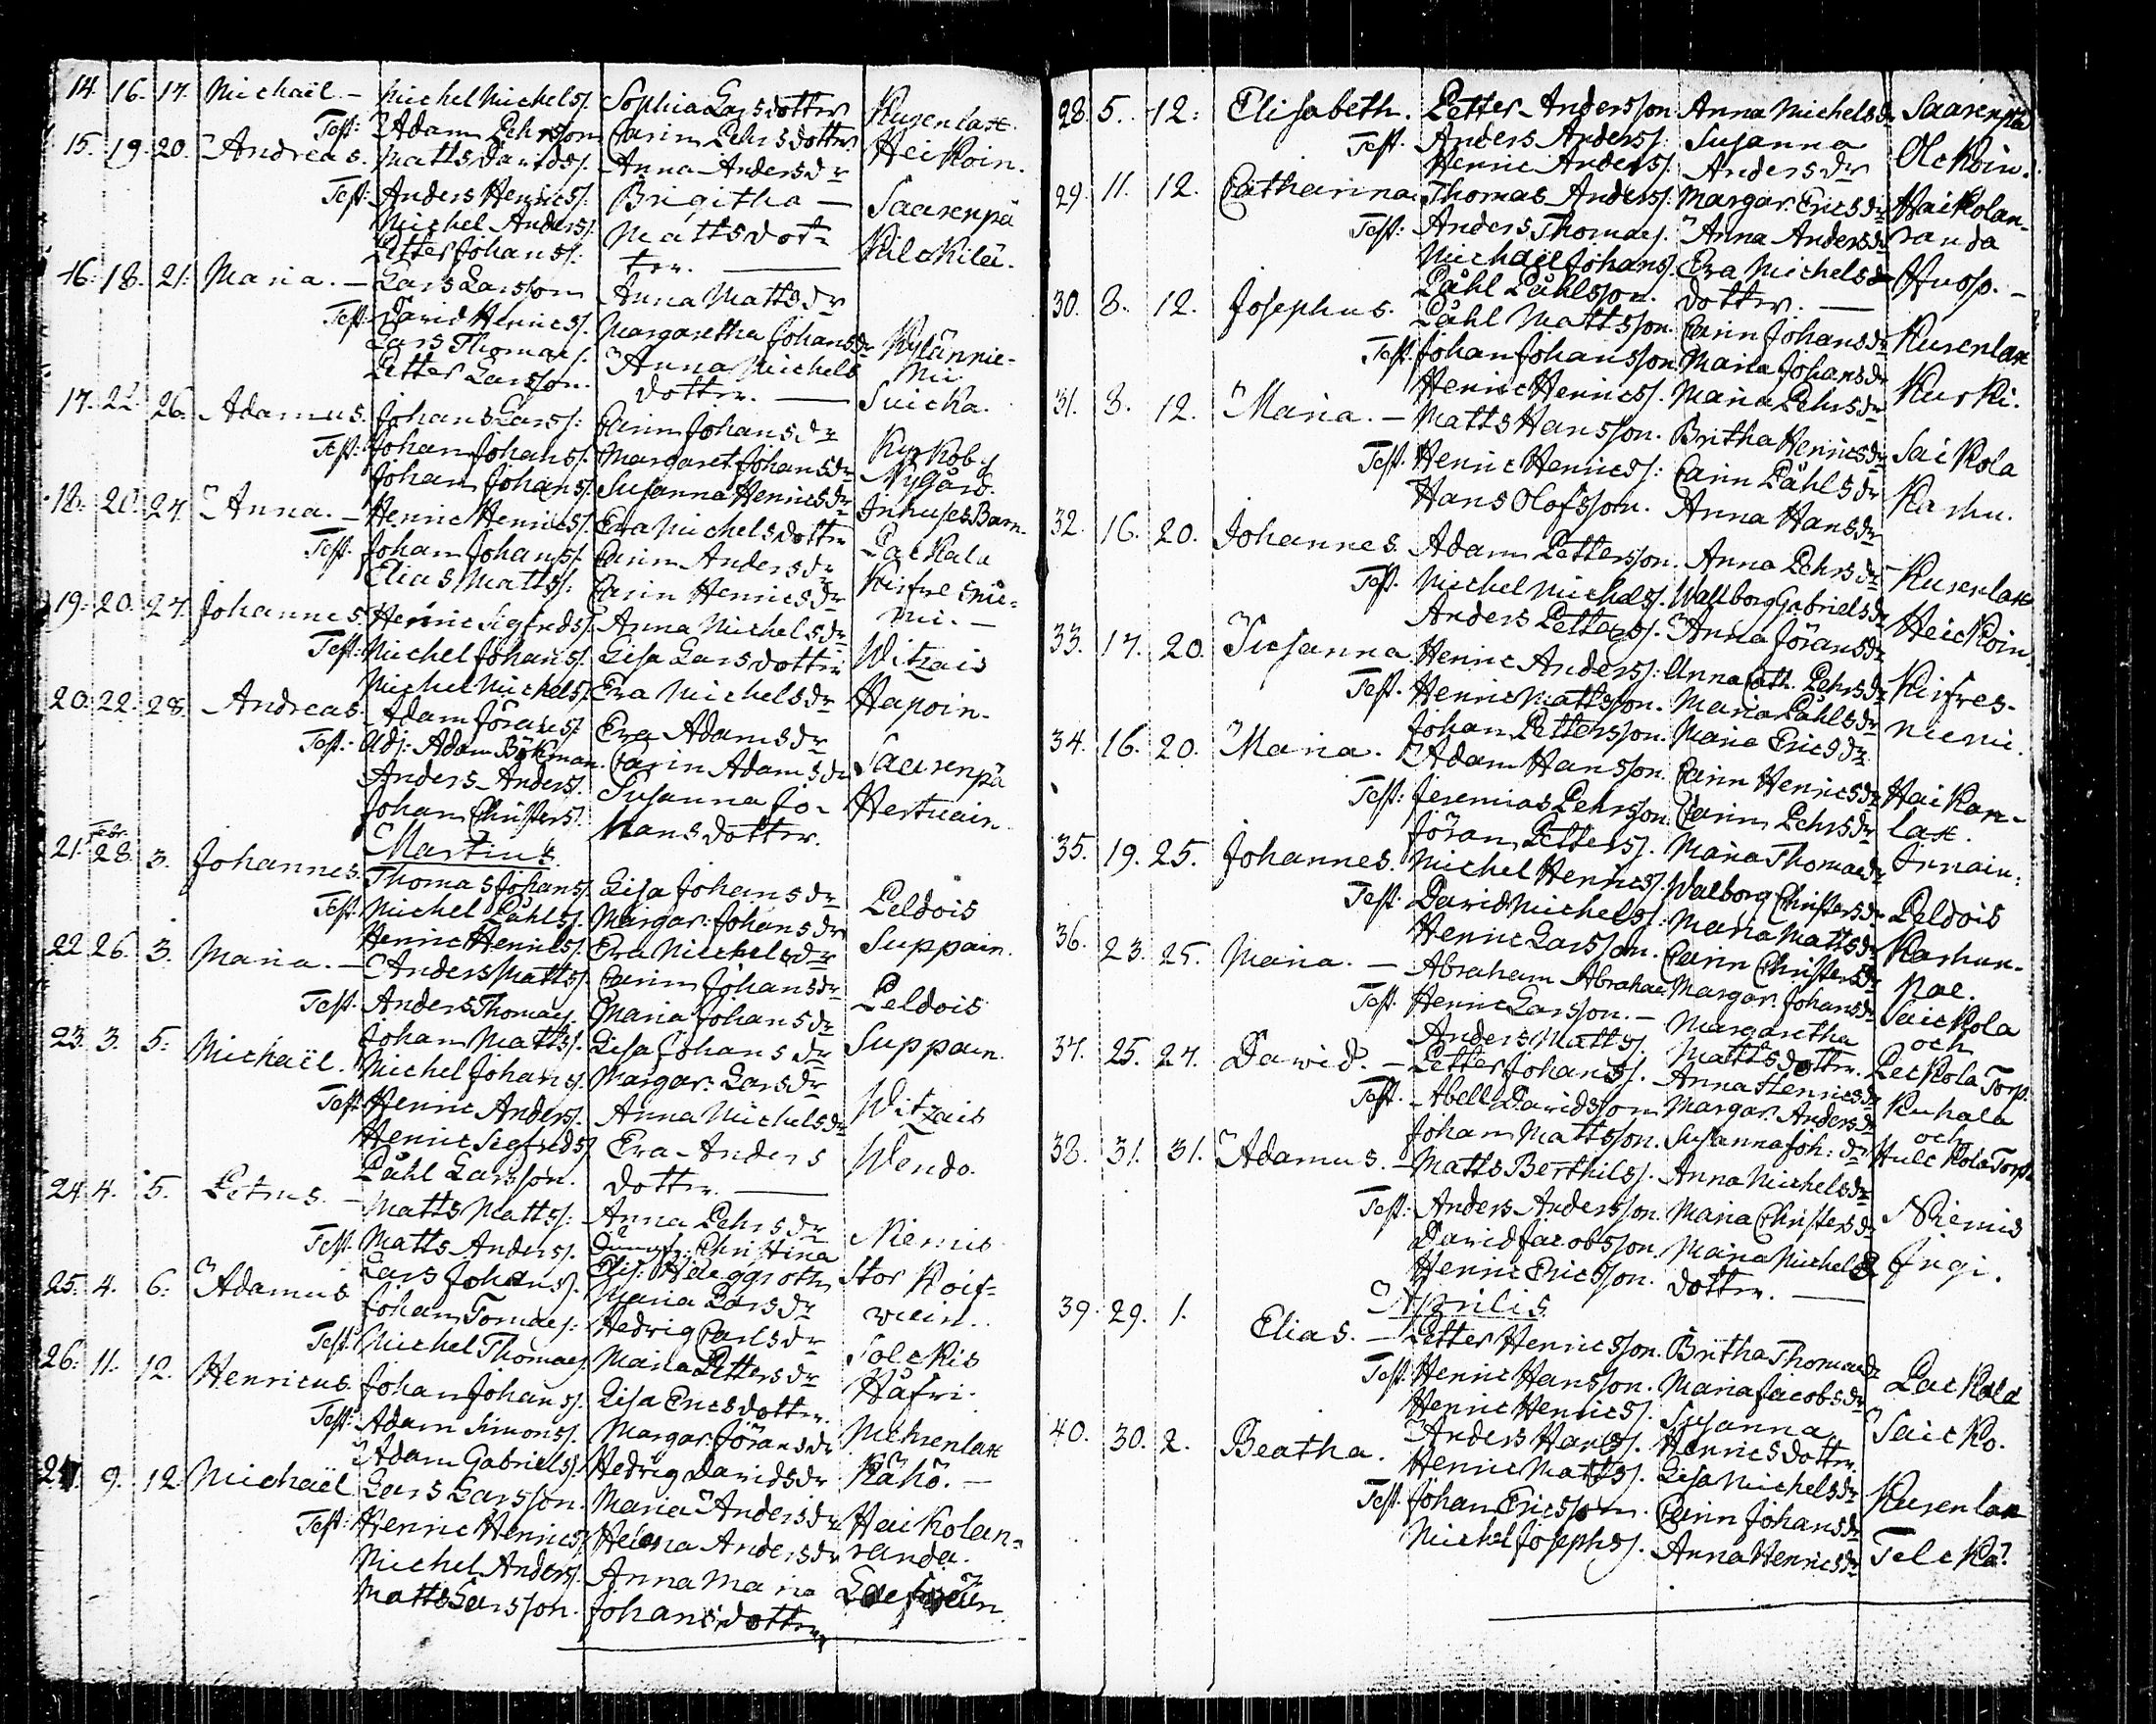 14. 16. 17. Michaël. — Michel Michelss. Sophia Larsdotter Kusenlax.
Test: Adam Pehrsson Carin Pehrsdotter Heickoin.
15. 19. 20. Andreas. Matts Davidss. Anna Andersdr
Test: Anders Henricss. Brigitha — Saarenpä
Michel Anderss. Mattsdot- Kilckilä.
Petter Johanss. ter. —
16. 18. 21. Maria. — Lars Larsson Anna Mattsdr
Test: David Henricss. Margaretha Johansdr Kylännie-
Lars Thomaes. Anna Michels mi
Petter Larsson. dotter. — Suicka.
17. 22. 26. Adamus. Johan Larss: Carin Johansdr
Test: Johan Johanss. Margaret. Johansdr Kyrkoby
Johan Johanss. Susanna Henricsdr Nygård.
18. 20. 27. Anna. — Henric Henricss. Eva Michelsdotter Inhuses Barn.
Test. Johan Johanss. Carin Andersdr Packala
Elias Mattss: Carin Henricsdr Kirfvesnie-
19. 20. 27. Johannes. Henric Sigfredss. Anna Michelsdr mi. —
Test: Michel Johanss. Lisa Larsdotter Witzais
Michel Michelss. Eva Michelsdr Hapoin.
20. 22. 28. Andreas. Adam Jöranss. Eva Adamsdr
Test: Adj: Adam Bökman. Carin Adamsdr Saarenpä
Anders Anderss. Susanna Jo- Hertuain.
Johan Christerss. hansdotter.
Martius.
21. Febr. 28. 3. Johannes. Thomas Johanss. Lisa Johansdr
Test: Michel Påhlss. Margar: Johansdr Peldois
Henric Henricss. Eva Michelsdr Suppain.
22. 26. 3. Maria. — Anders Mattss. Carin Johansdr
Test. Anders Thomaes. Maria Johansdr Peldois
Johan Mattss. Lisa Johansdr Suppain.
23. 3. 5. Michaël. Michel Johanss. Margar. Larsdr
Test. Henric Anderss. Anna Michelsdr Witzais
Henric Sigfredss. Eva Anders Wendo.
Påhl Larsson. dotter. —
24. 4. 5. Petrus. — Matts Mattss: Anna Pehrsdr
Test. Matts Anderss. Christina Niemis
Lars Johanss. Elis: Häggroth Stor Koif-
25. 4. 6. Adamus Johan Tomaes: Maria Larsdr
Test. Michel Thomaes Hedvig Carlsdr Solckis
Maria Pettersdr Håfri.
26. 11. 12. Henricus. Johan Johanss. Lisa Ericsdotter.
Test: Adam Simonss. Margar. Jöransdr Mehrenlax
Adam Gabrielss. Hedvig Davidsdr Kähö. —
27. 9. 12. Michaël Lars Larsson. Maria Andersdr Haickolan-
Test: Henric Henricss. Helena Andersdr randa.
Michel Anderss. Anna Maria
Matts Larsson. Johansdotter
28. 5. 12. Elisabeth. Petter Andersson. Anna Michelsdr Saarenpä
Test. Anders Anderss. Susanna Olckoin.
Henric Anderss. Andersdr
29. 11. 12. Catharina. Thomas Anderss. Margar. Ericsdr Haickolan-
Test: Anders Thomaes. Anna Andersdr randa
Michael Johanss. Eva Michels Husp. —
Påhl Påhlsson. dotter. —
30. 8. 12. Josephus. Påhl Mattsson. Carin Johansdr Kusenlax
Test. Johan Johansson. Maria Johansdr
Henric Henricss. Maria Pehrsdr Kurki.
31. 8. 12. Maria. — Matts Hansson. Britha Henricsdr Saickola
Test. Henric Henricss: Carin Påhlsdr
Hans Olofsson. Anna Hansdr Karhu.
32. 16. 20. Johannes. Adam Pettersson. Anna Pehrsdr Kusenlax
Test. Michel Michelss. Wallborg Gabrielsdr
Anders Petterss. Anna Jöransdr Heickoin.
33. 17. 20. Susanna. Henric Anderss: Anna Cath. Pehrsdr Kirfves-
Test. Henric Mattsson. Maria Påhlsdr niemi.
Johan Pettersson. Maria Ericsdr
34. 16. 20. Maria. Adam Hansson. Carin Henricsdr Haikan-
Test: Jeremias Pehrsson. Carin Pehrsdr lax.
Jöran Petterss. Maria Thomaedr Innain:
35. 19. 25. Johannes. Michel Henricss. Walborg Christersdr Peldois
Test: David Michelss: Maria Mattsdr
Henric Larsson. Carin Christersdr Karhun-
36. 23. 25. Maria. — Abraham Abrahae. Margar. Johansdr pae.
Test. Henric Larsson. — Margaretha Saickola
Anders Mattss. Mattsdotter. och
37. 25. 27. David. — Petter Johanss. Anna Henricsdr Peckola Torp.
Test. Abell Davidsson Margar. Andersdr Kuhala
Johan Mattsson. Susanna Joh: dr och
38. 31. 31. Adamus. — Matts Berthilss. Anna Michelsdr Hulckola Torp.
Test: Anders Andersson. Maria Christersdr Niemis
David Jacobsson. Maria Michels Ingi.
Henric Ericsson. dotter. —
Aprilis.
39. 29. 1. Elias. — Petter Henricsson. Britha Thomaedr
Test. Henric Hansson. Maria Jacobsdr Packala
Henric Henricss. Susanna Saicko.
Anders Hanss. Henricsdotter.
40. 30. 2. Beatha. Henric Mattss. Lisa Michelsdr
Test. Johan Ericsson. Carin Johansdr Kusenlax
Michel Josephss. Anna Henricsdr Telckä.